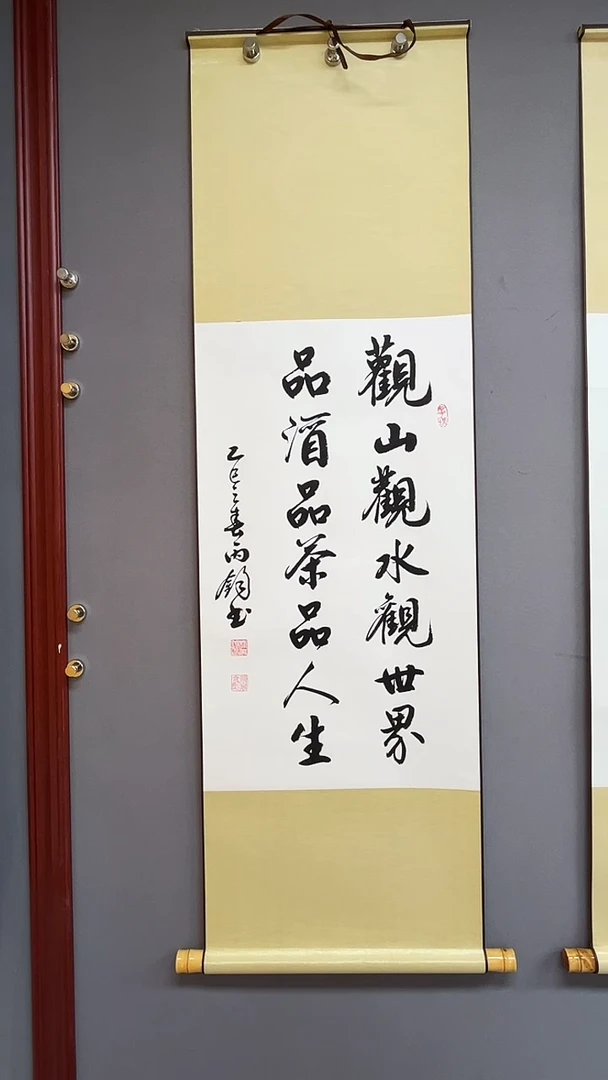 觀山觀水觀世界
品酒品茶品人生
乙巳之春丙鈞書